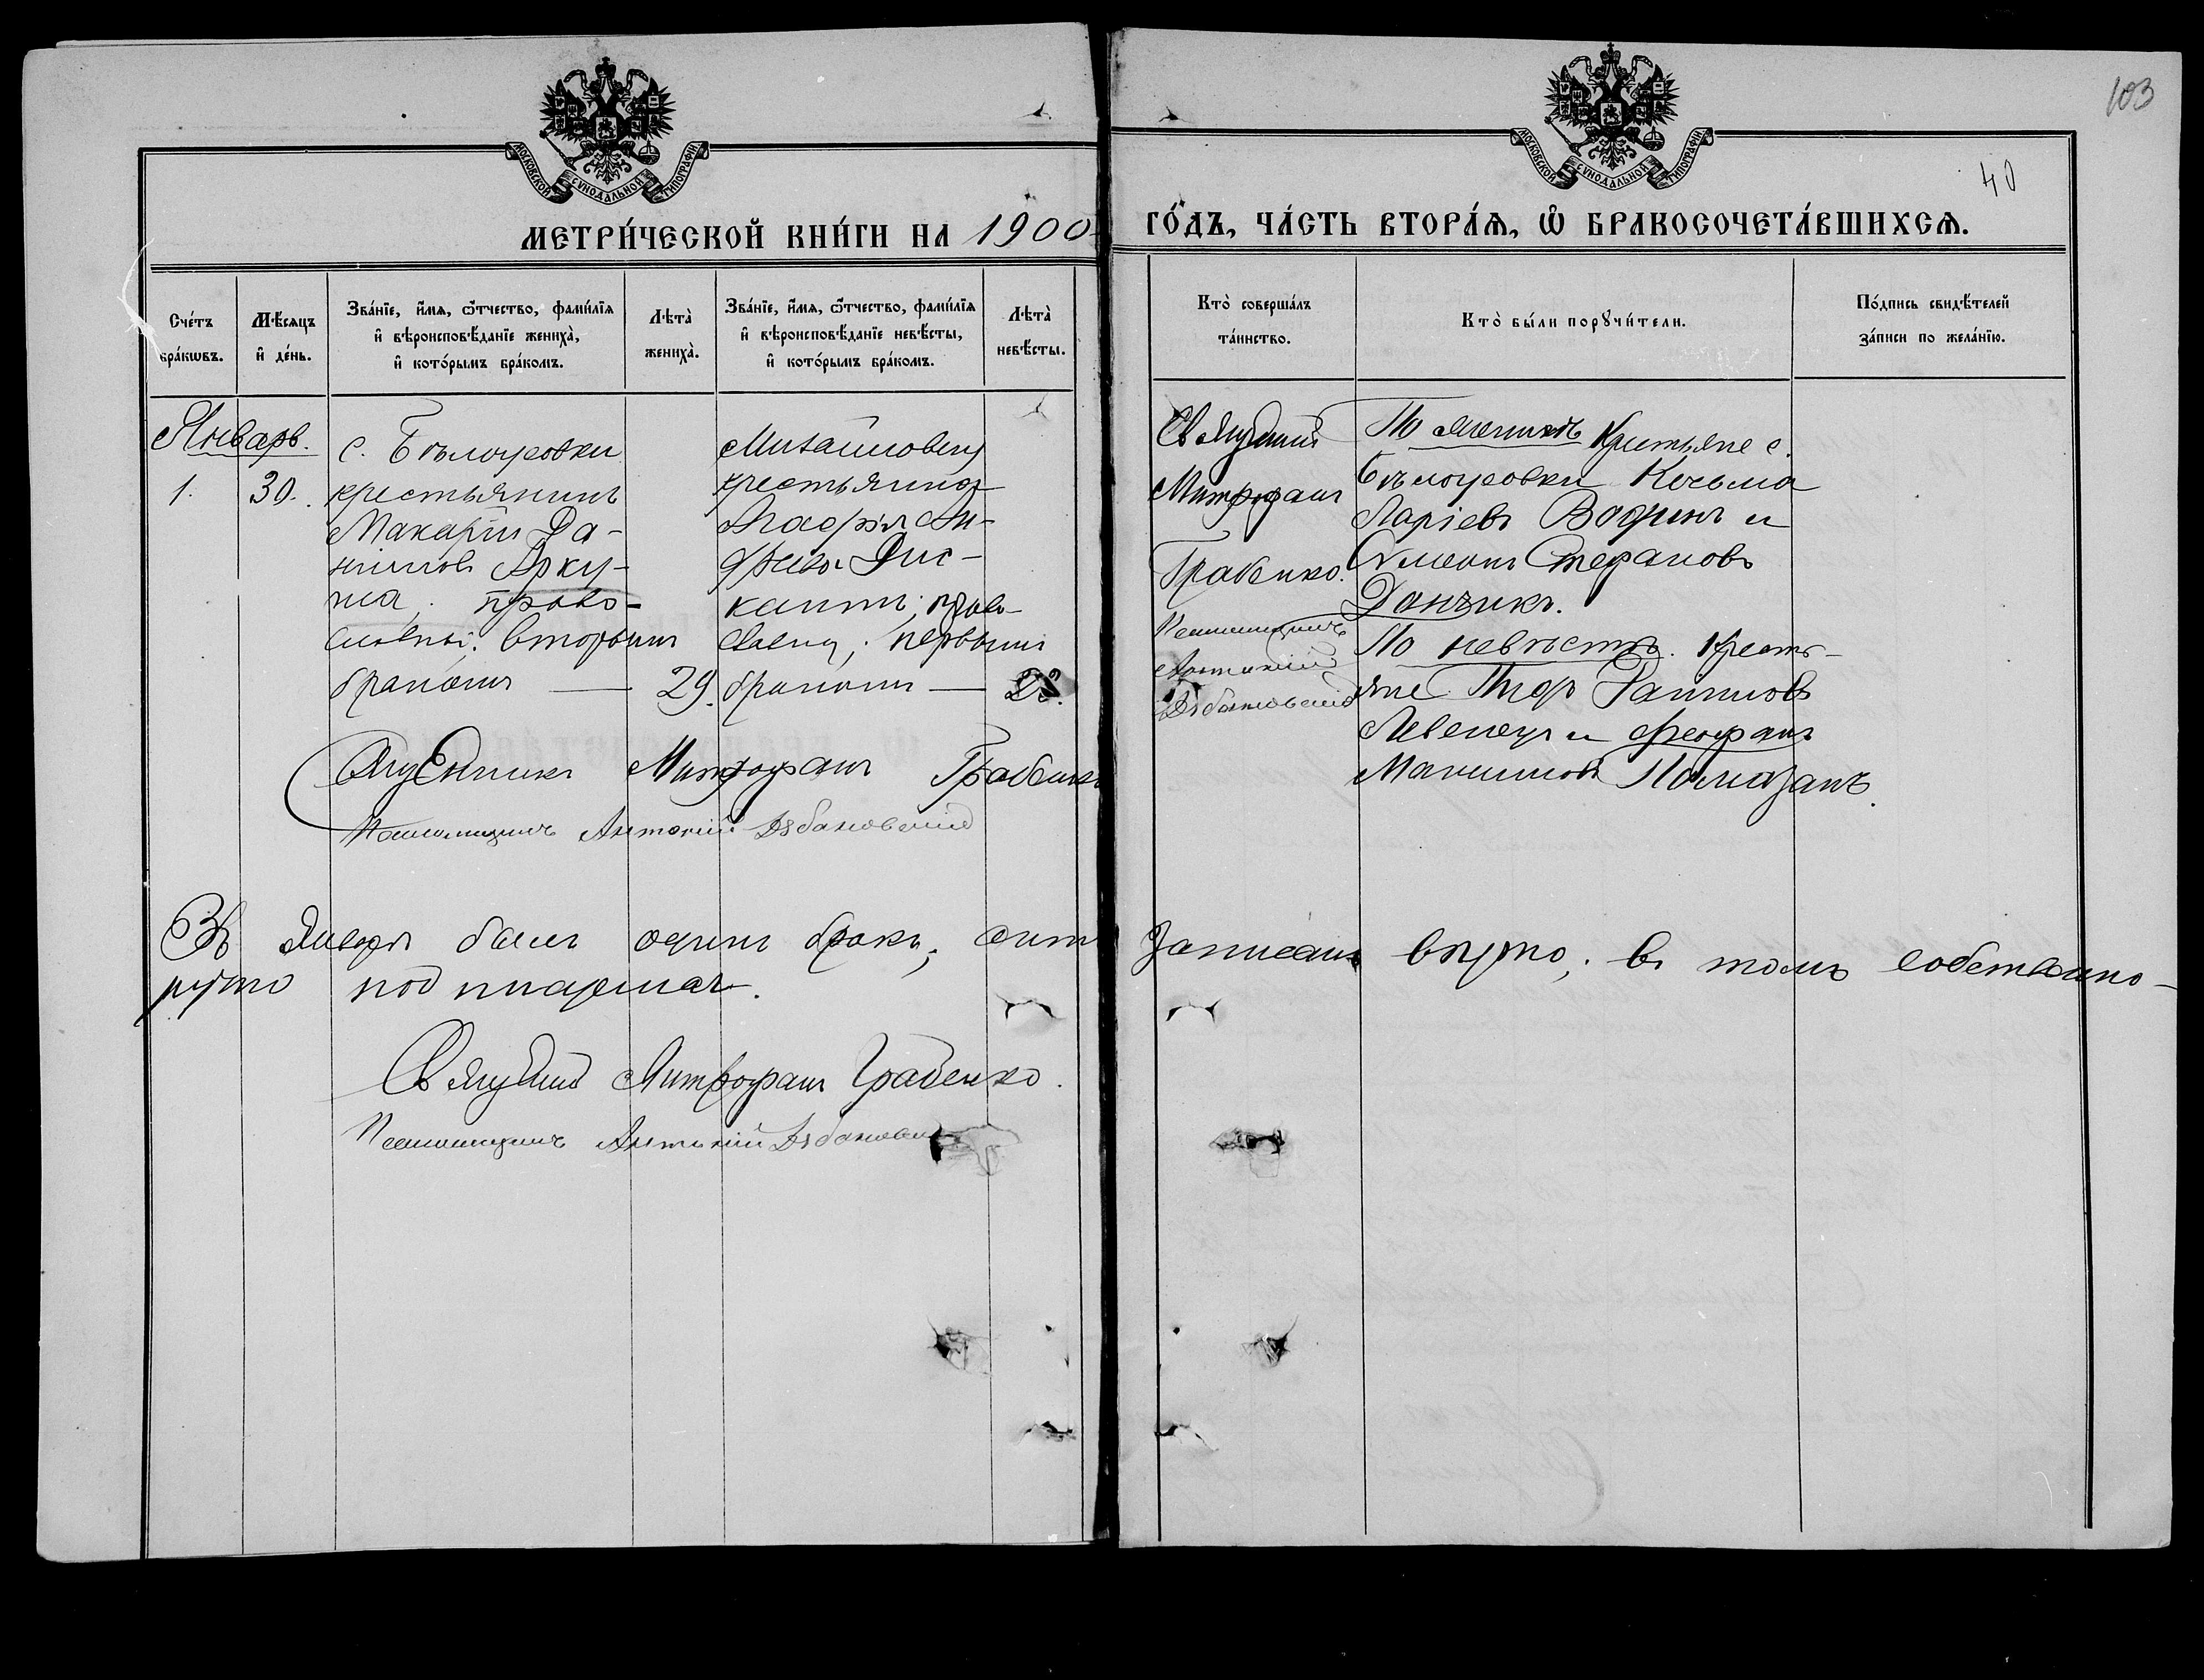 103
40
МОСКОВСКОЙ СУНОДАЛЬНОЙ ТИПОГРАФІИ
МОСКОВСКОЙ СУНОДАЛЬНОЙ ТИПОГРАФІИ
МЕТРИ́ЧЕСКОЙ КНИ́ГИ НА 1900 ГО́ДЪ, ЧА́СТЬ ВТОРА́Ѧ, Ѽ БРАКОСОЧЕТА́ВШИХСѦ.
Сче́тъ бра́кѡвъ.
Мѣ́сяцъ и҆ де́нь.
Зва́нїе, и҆́мѧ, ѻ҆́тчество, фами́лїѧ и҆ вѣроисповѣ́данїе жениха̀, и҆ кото́рымъ бра́комъ.
Лѣта̀ жениха̀.
Зва́нїе, и҆́мѧ, ѻ҆́тчество, фами́лїѧ и҆ вѣроисповѣ́данїе невѣ́сты, и҆ кото́рымъ бра́комъ.
Лѣта̀ невѣ́сты.
Кто̀ соверша́лъ та́инство.
Кто̀ бы́ли порꙋчи́тели.
По́дпись свидѣ́телей за́писи по жела́нїю.
Январь.
1.
30.
с. Бѣлоцерковки
крестьянинъ
Макарій Да-
ніиловъ Арку-
ша, право-
славный, вторымъ
бракомъ — 29.
крестьянка
Агафія Ан-
дреева Дис-
кантъ, право-
славна, первымъ
бракомъ —
Священникъ
Митрофанъ
Грабенко.
Псаломщикъ
Антоній
По женихѣ крестьяне с.
Бѣлоцерковки Козьма
Іларіевъ Водзикъ и
Симеонъ Стефановъ
Данзикъ.
По невѣстѣ. Кресть-
яне
Левенецъ и Феофанъ
Максимовъ Помазанъ.
Священникъ Митрофанъ Грабенко
Псаломщикъ Антоній
Въ Январѣ былъ одинъ бракъ; онъ записанъ вѣрно; въ томъ собственно-
ручно подписуемся.
Священникъ Митрофанъ Грабенко.
Псаломщикъ Антоній